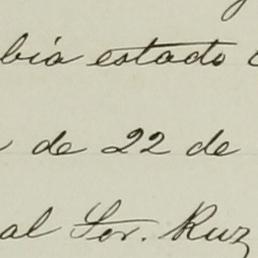 bia estado
de 22 de
al Sor. Ruz